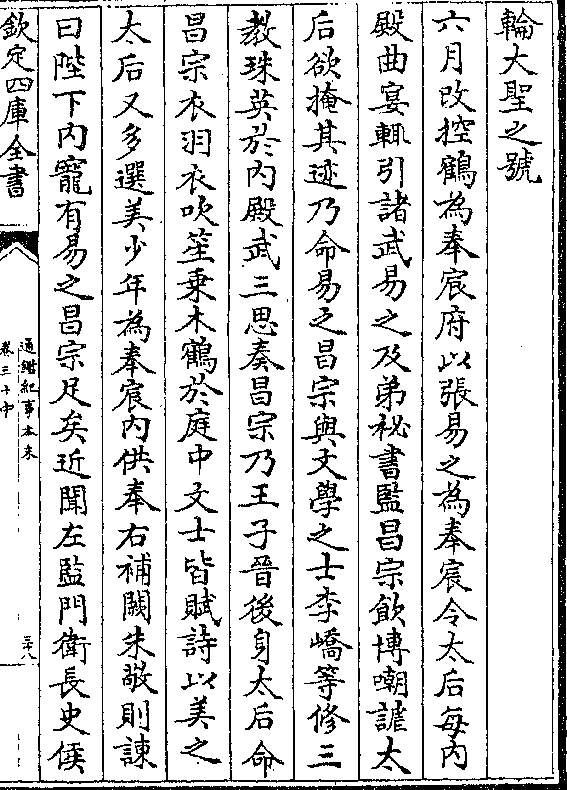 輪大聖之號
六月改控鶴為奉宸府以張易之為奉宸令太后每内
殿曲宴輒引諸武易之及弟祕書監昌宗飲博嘲謔太
后欲掩其迹乃命易之昌宗與文學之士李嶠等修三
教珠英於内殿武三思奏昌宗乃王子晉後身太后命
昌宗衣羽衣吹笙乗木鶴於庭中文士皆賦詩以美之
太后又多選美少年為奉宸内供奉右補闕朱敬則諫
曰陛下内寵有易之昌宗足矣近聞左監門衛長史侯
欽定四庫全書
通鑑紀事本末
卷三十中
三十八